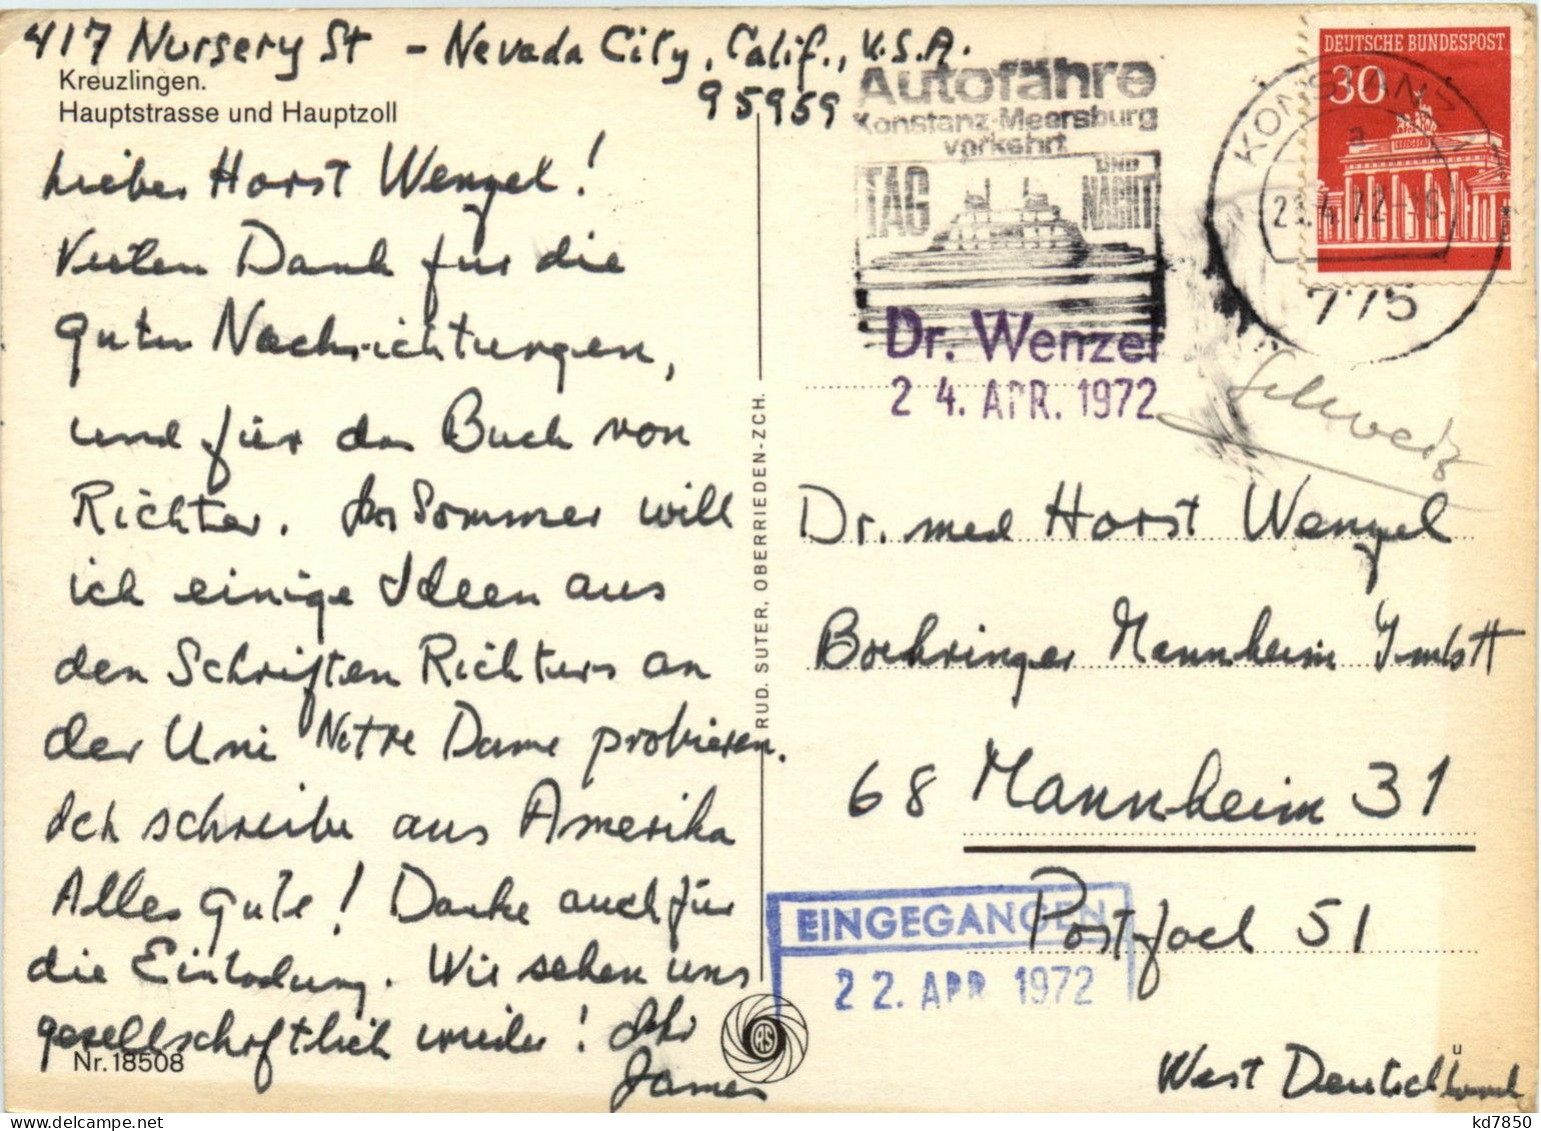 417 Nursery St - Nevada City, Calif., U.S.A.
95959
Kreuzlingen.
Hauptstrasse und Hauptzoll
Lieber Horst Wenzel!
Vielen Dank für die
guten Nachrichtungen,
und für das Buch von
Richter. Im Sommer will
ich einige Ideen aus
den Schriften Richters an
der Uni Notre Dame probieren.
Ich schreibe aus Amerika
Alles Gute! Danke auch für
die Einladung. Wir sehen uns
gesellschaftlich wieder! Ihr
James
Nr. 18508
RUD. SUTER, OBERRIEDEN-ZCH.
AS
Autofähre
Konstanz-Meersburg
verkehrt
TAG UND NACHT
DEUTSCHE BUNDESPOST
30
KONSTANZ
a
775
Dr. Wenzel
24. APR. 1972
Schweiz
Dr. med Horst Wenzel
Boehringer Mannheim
68 Mannheim 31
Postfach 51
EINGEGANGEN
22. APR. 1972
u
West Deutschland
kd7850